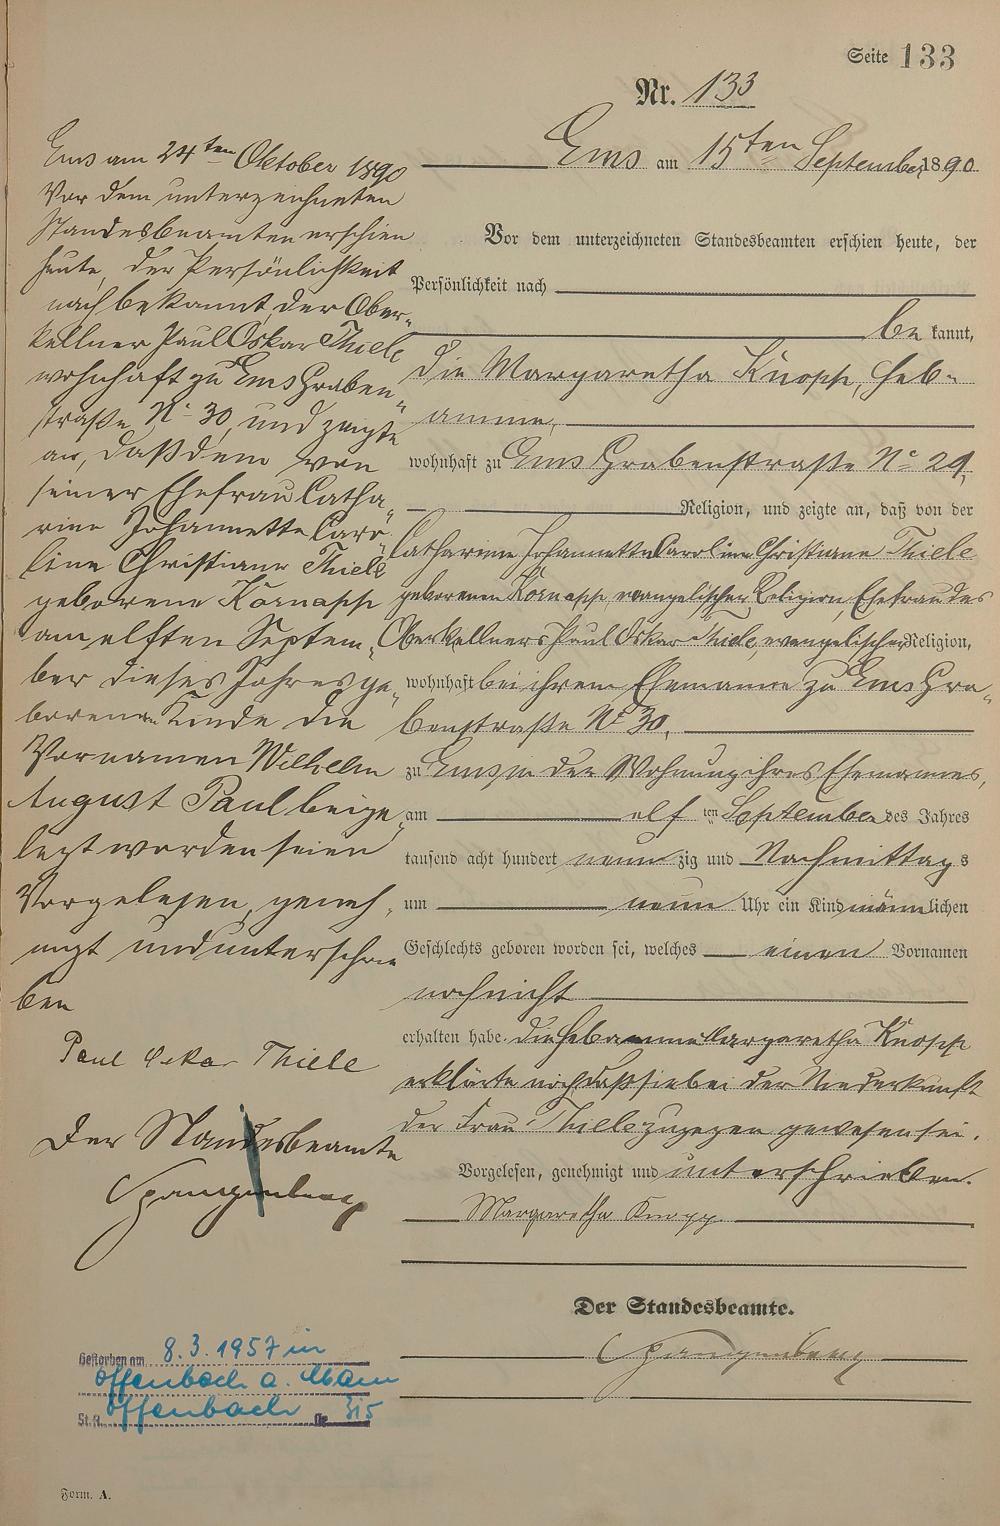 Seite 133
Nr. 133
Ems am 15ten September 1890
Vor dem unterzeichneten Standesbeamten erschien heute, der
Persönlichkeit nach
bekannt,
die Margaretha Knopp, Heb-
amme,
wohnhaft zu Ems Grabenstraße No 29,
Religion, und zeigte an, daß von der
Catharine Johannette Caroline Christiane Thiele
geborenen Kornapp evangelischer Religion, Ehefrau des
Oberkellners Paul Oskar Thiele, evangelischer Religion,
wohnhaft bei ihrem Ehemanne zu Ems Gra-
benstraße No 30,
zu Ems in der Wohnung ihres Ehemannes,
am elf ten September des Jahres
tausend acht hundert neunzig und Nachmittags
um neun Uhr ein Kind männlichen
Geschlechts geboren worden sei, welches einen Vornamen
noch nicht
erhalten habe. Die Hebamme Margaretha Knopp
erklärte noch, daß sie bei der Niederkunft
der Frau Thiele zugegen gewesen sei.
Vorgelesen, genehmigt und unterschrieben.
Margaretha Knopp
Der Standesbeamte.
Spangenberg
Ems am 24ten Oktober 1890
Vor dem unterzeichneten
Standesbeamten erschien
heute, der Persönlichkeit
nach bekannt, der Ober-
kellner Paul Oskar Thiele
wohnhaft zu Ems Graben-
straße No 30, und zeigte
an, daß dem von
seiner Ehefrau Catha-
rine Johannette Caro-
line Christiane Thiele
geborene Kornapp
am elften Septem-
ber dieses Jahres ge-
borenen Kinde die
Vornamen Wilhelm
August Paul beige-
legt worden seien
Vorgelesen, geneh-
migt und unterschrie-
ben
Paul Oskar Thiele
Der Standesbeamte
Spangenberg
Gestorben am 8.3.1957 in
Offenbach a. Main
St.A. Offenbach Nr. 315
Form. A.